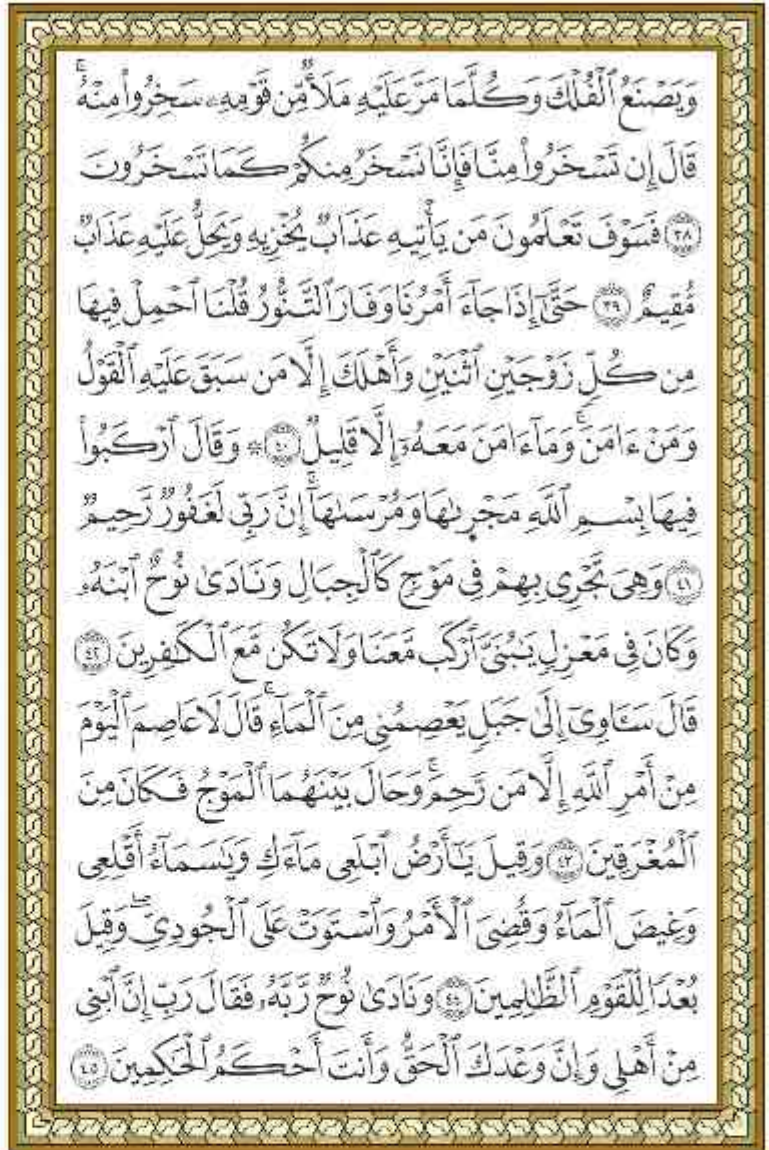 وَيَصْنَعُ ٱلْفُلْكَ وَكُلَّمَا مَرَّ عَلَيْهِ مَلَأٌ مِّن قَوْمِهِۦ سَخِرُوا۟ مِنْهُ ۚ
قَالَ إِن تَسْخَرُوا۟ مِنَّا فَإِنَّا نَسْخَرُ مِنكُمْ كَمَا تَسْخَرُونَ
﴿٣٨﴾ فَسَوْفَ تَعْلَمُونَ مَن يَأْتِيهِ عَذَابٌ يُخْزِيهِ وَيَحِلُّ عَلَيْهِ عَذَابٌ
مُّقِيمٌ ﴿٣٩﴾ حَتَّىٰٓ إِذَا جَآءَ أَمْرُنَا وَفَارَ ٱلتَّنُّورُ قُلْنَا ٱحْمِلْ فِيهَا
مِن كُلٍّ زَوْجَيْنِ ٱثْنَيْنِ وَأَهْلَكَ إِلَّا مَن سَبَقَ عَلَيْهِ ٱلْقَوْلُ
وَمَنْ ءَامَنَ ۚ وَمَآ ءَامَنَ مَعَهُۥٓ إِلَّا قَلِيلٌ ﴿٤٠﴾ ۞ وَقَالَ ٱرْكَبُوا۟
فِيهَا بِسْمِ ٱللَّهِ مَجْر۪ىٰهَا وَمُرْسَىٰهَآ ۚ إِنَّ رَبِّى لَغَفُورٌ رَّحِيمٌ
﴿٤١﴾ وَهِىَ تَجْرِى بِهِمْ فِى مَوْجٍ كَٱلْجِبَالِ وَنَادَىٰ نُوحٌ ٱبْنَهُۥ
وَكَانَ فِى مَعْزِلٍ يَٰبُنَىَّ ٱرْكَب مَّعَنَا وَلَا تَكُن مَّعَ ٱلْكَٰفِرِينَ ﴿٤٢﴾
قَالَ سَـَٔاوِىٓ إِلَىٰ جَبَلٍ يَعْصِمُنِى مِنَ ٱلْمَآءِ ۚ قَالَ لَا عَاصِمَ ٱلْيَوْمَ
مِنْ أَمْرِ ٱللَّهِ إِلَّا مَن رَّحِمَ ۚ وَحَالَ بَيْنَهُمَا ٱلْمَوْجُ فَكَانَ مِنَ
ٱلْمُغْرَقِينَ ﴿٤٣﴾ وَقِيلَ يَٰٓأَرْضُ ٱبْلَعِى مَآءَكِ وَيَٰسَمَآءُ أَقْلِعِى
وَغِيضَ ٱلْمَآءُ وَقُضِىَ ٱلْأَمْرُ وَٱسْتَوَتْ عَلَى ٱلْجُودِىِّ ۖ وَقِيلَ
بُعْدًا لِّلْقَوْمِ ٱلظَّٰلِمِينَ ﴿٤٤﴾ وَنَادَىٰ نُوحٌ رَّبَّهُۥ فَقَالَ رَبِّ إِنَّ ٱبْنِى
مِنْ أَهْلِى وَإِنَّ وَعْدَكَ ٱلْحَقُّ وَأَنتَ أَحْكَمُ ٱلْحَٰكِمِينَ ﴿٤٥﴾